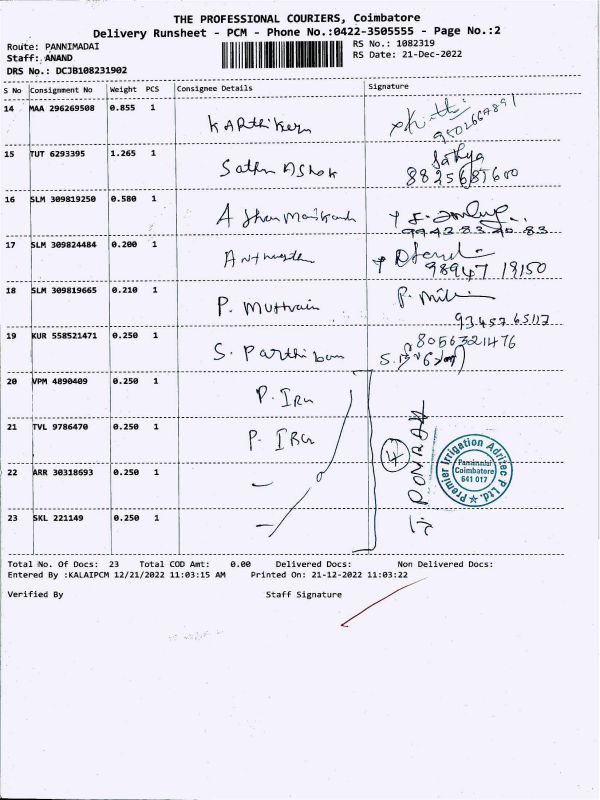 THE PROFESSIONAL COURIERS, Coimbatore
Delivery Runsheet - PCM - Phone No.:0422-3505555 - Page No.:2
Route: PANNIMADAI
RS No.: 1082319
Staff: ANAND
RS Date: 21-Dec-2022
DRS No.: DCJB108231902
S No Consignment No Weight PCS Consignee Details Signature
14 MAA 296269508 0.855 1 KARthikeyn
15 TUT 6293395 1.265 1 Sathya AShok Sathya
8825687600
16 SLM 309819250 0.580 1
9942 83 40 83
17 SLM 309824484 0.200 1
98947 19150
18 SLM 309819665 0.210 1 P. Muthrain
93457 65117
19 KUR 558521471 0.250 1 S. Parthiban 8056321476
20 VPM 4890409 0.250 1 P. IRri
21 TVL 9786470 0.250 1 P. IRri
22 ARR 30318693 0.250 1 –
23 SKL 221149 0.250 1 –
4
PONRAJ
Premier Irrigation Adritec P Ltd.
Pannimalai
Coimbatore
641 017
Total No. Of Docs: 23 Total COD Amt: 0.00 Delivered Docs: Non Delivered Docs:
Entered By :KALAIPCM 12/21/2022 11:03:15 AM Printed On: 21-12-2022 11:03:22
Verified By Staff Signature